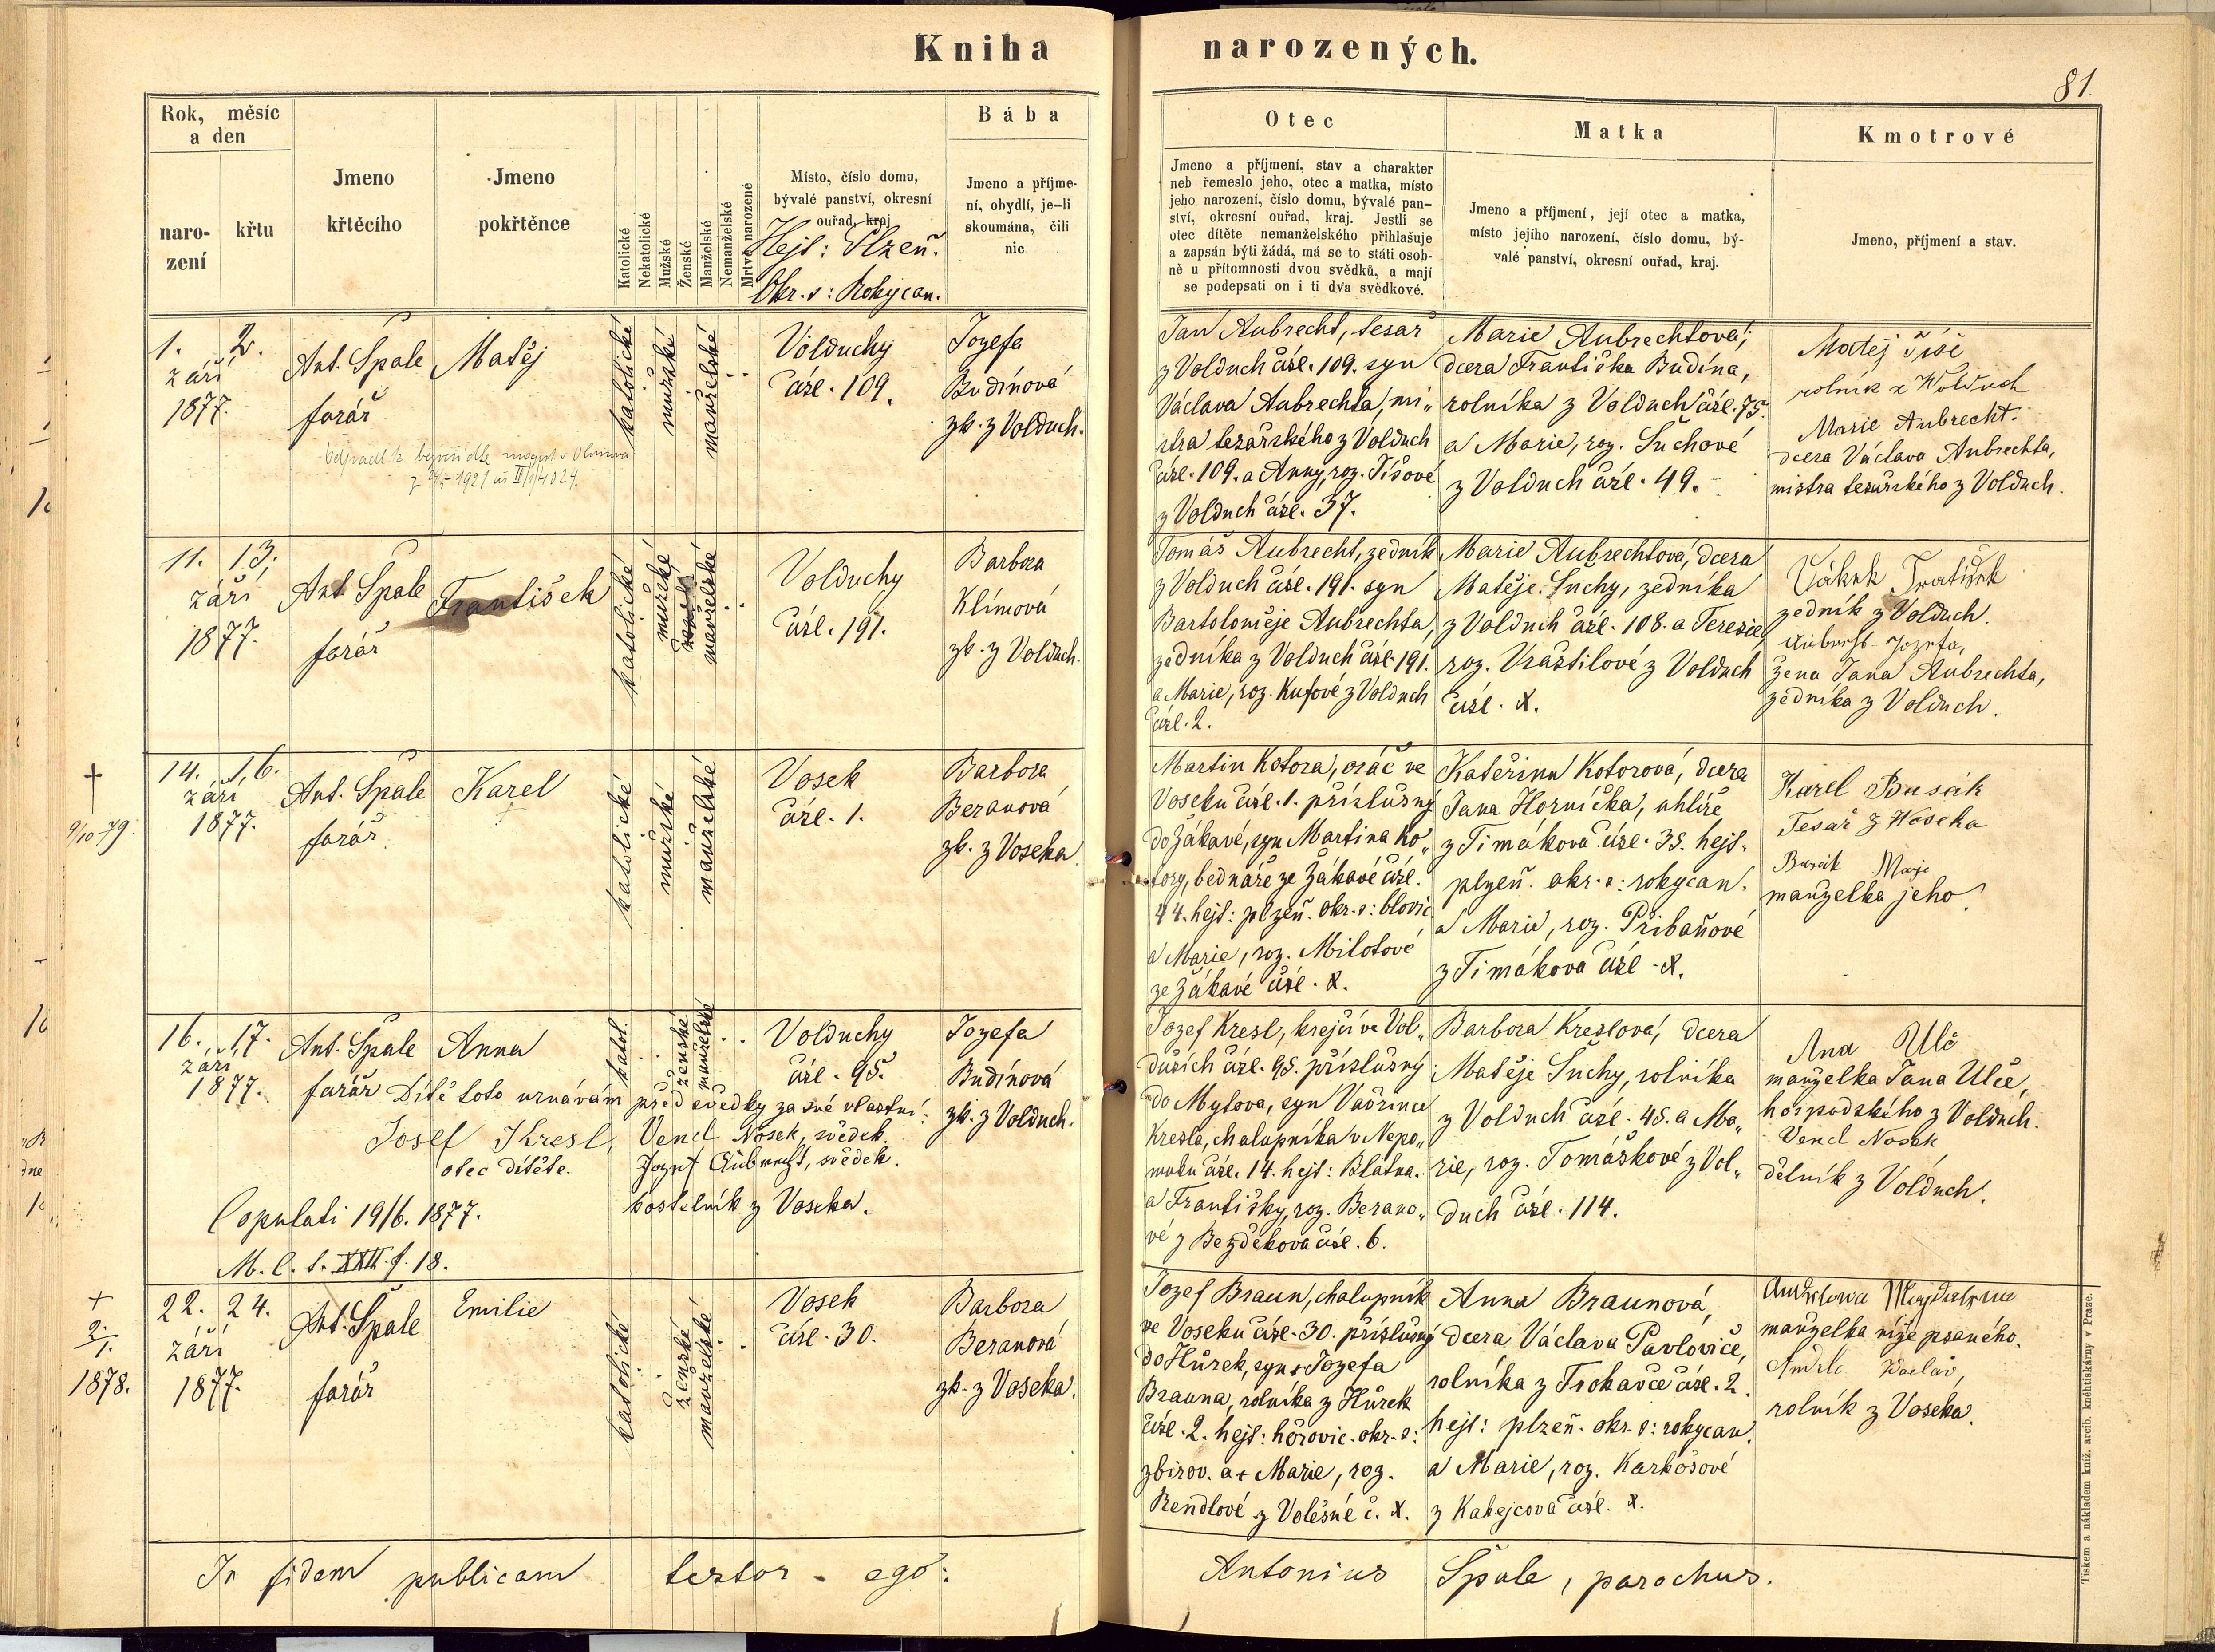 Kniha narozených.
81.
Rok, měsíc
a den
naro-
zení
křtu
Jmeno
křtěcího
Jmeno
pokřtěnce
Katolické
Nekatolické
Mužské
Ženské
Manželské
Nemanželské
Mrtvě narozené
Místo, číslo domu,
bývalé panství, okresní
ouřad, kraj
Hejt: Plzeň.
Okr. s: Rokycan.
Bába
Jmeno a příjme-
ní, obydlí, je-li
skoumána, čili
nic
Otec
Jmeno a příjmení, stav a charakter
neb řemeslo jeho, otec a matka, místo
jeho narození, číslo domu, bývalé pan-
ství, okresní ouřad, kraj. Jestli se
otec dítěte nemanželského přihlašuje
a zapsán býti žádá, má se to státi osob-
ně u přítomnosti dvou svědků, a mají
se podepsati on i ti dva svědkové.
Matka
Jmeno a příjmení, její otec a matka,
místo jejího narození, číslo domu, bý-
valé panství, okresní ouřad, kraj.
Kmotrové
Jmeno, příjmení a stav.
1. 2.
září
1877.
Ant. Špale
farář
Matěj
katolické
mužské
manželské
Volduchy
čísl. 109.
Jozefa
Budínová
zk. z Volduch.
1921 II/1/4024.
Jan Aubrecht, tesař
z Volduch čísl. 109. syn
Václava Aubrechta, mi„
stra tesařského z Volduch
čísl. 109. a Anny, roz. Tíšové
z Volduch čísl. 37.
Marie Aubrechtová,
dcera Františka Budína,
rolníka z Volduch čísl. 75.
a Marie, roz. Suchové
z Volduch čísl. 49.
Matěj Tíše
rolník z Wolduch
Marie Aubrecht.
dcera Václava Aubrechta,
mistra tesařského z Volduch.
11. 13.
září
1877.
Ant. Špale
farář
František
katolické
mužské
manželské
Volduchy
čísl. 191.
Barbora
Klímová
zk. z Volduch.
Tomáš Aubrecht, zedník
z Volduch čísl. 191. syn
Bartoloměje Aubrechta,
zedníka z Volduch čísl. 191.
a Marie, roz. Kufové z Volduch
čísl. 2.
Marie Aubrechtová, dcera
Matěje Suchy, zedníka
z Volduch čísl. 108. a Terezie,
roz. Vraštilové z Volduch
čísl. X.
zedník z Volduch.
Aubrecht Jozefa,
žena Jana Aubrechta,
zedníka z Volduch.
†
9/10 79.
14. 16.
září
1877.
Ant. Špale
farář
Karel
†
katolické
mužské
manželské
Vosek
čísl. 1.
Barbora
Beranová
zk. z Voseka.
Martin Kotora, oráč ve
Voseku čísl. 1. příslušný
do Žákavé, syn Martina Ko„
tory, bednáře ze Žákavé čísl.
44. hejt: plzeň. okr. s: blovic.
a Marie, roz. Milotové
ze Žákavé čísl. X.
Kateřina Kotorová, dcera
Jana Horníčka, uhlíře
z Timákova čísl. 35. hejt.
plzeň. okr. s: rokycan.
a Marie, roz. Přibaňové
z Timákova čísl. X.
Karel Busák
Tesař z Woseka
Busák
manželka jeho.
16. 17.
září
1877.
Ant. Špale
farář
Anna
katol.
ženské
manželské
Volduchy
čísl. 95.
Jozefa
Budínová
zk. z Volduch.
Dítě toto uznávám před svědky za své vlastní:
Josef Kresl,
otec dítěte.
Vencl Nosek, svědek.
Jozef Aubrecht, svědek.
kostelník z Voseka.
Copulati 19/6. 1877.
M. C. t. XXII. f. 18.
Jozef Kresl, krejčí ve Vol„
duších čísl. 95. příslušný
do Mytova, syn Vavřince
Kresla, chalupníka v Nepo„
muku čísl. 14. hejt: Blatna.
a Františky, roz. Berano„
vé z Bezděkova čísl. 6.
Barbora Kreslová, dcera
Matěje Suchy, rolníka
z Volduch čísl. 45. a Ma„
rie, roz. Tomáškové z Vol„
duch čísl. 114.
Ana Ulč
manželka Jana Ulče,
hospodského z Volduch.
Vencl Nosek
dělník z Volduch.
+
2./1.
1878.
22. 24.
září
1877.
Ant. Špale
farář
Emilie
katolické
ženské
manželské
Vosek
čísl. 30.
Barbora
Beranová
zk. z Voseka.
Jozef Braun, chalupník
ve Voseku čísl. 30. příslušný
do Hůrek, syn + Jozefa
Brauna, rolníka z Hůrek
čísl. 2. hejt: hořovic. okr. s:
zbirov. a + Marie, roz.
Rendlové z Volešné č. X.
Anna Braunová,
dcera Václava Pavloviče,
rolníka z Trokavce čísl. 2.
hejt: plzeň. okr. s: rokycan.
a Marie, roz. Karkošové
z Kakejcova čísl. X.
manželka níže psaného.
Andrle Václav,
rolník z Voseka.
In fidem publicam testor ego:
Antonius Špale, parochus.
Tiskem a nákladem kníž. arcib. knihtiskárny v Praze.